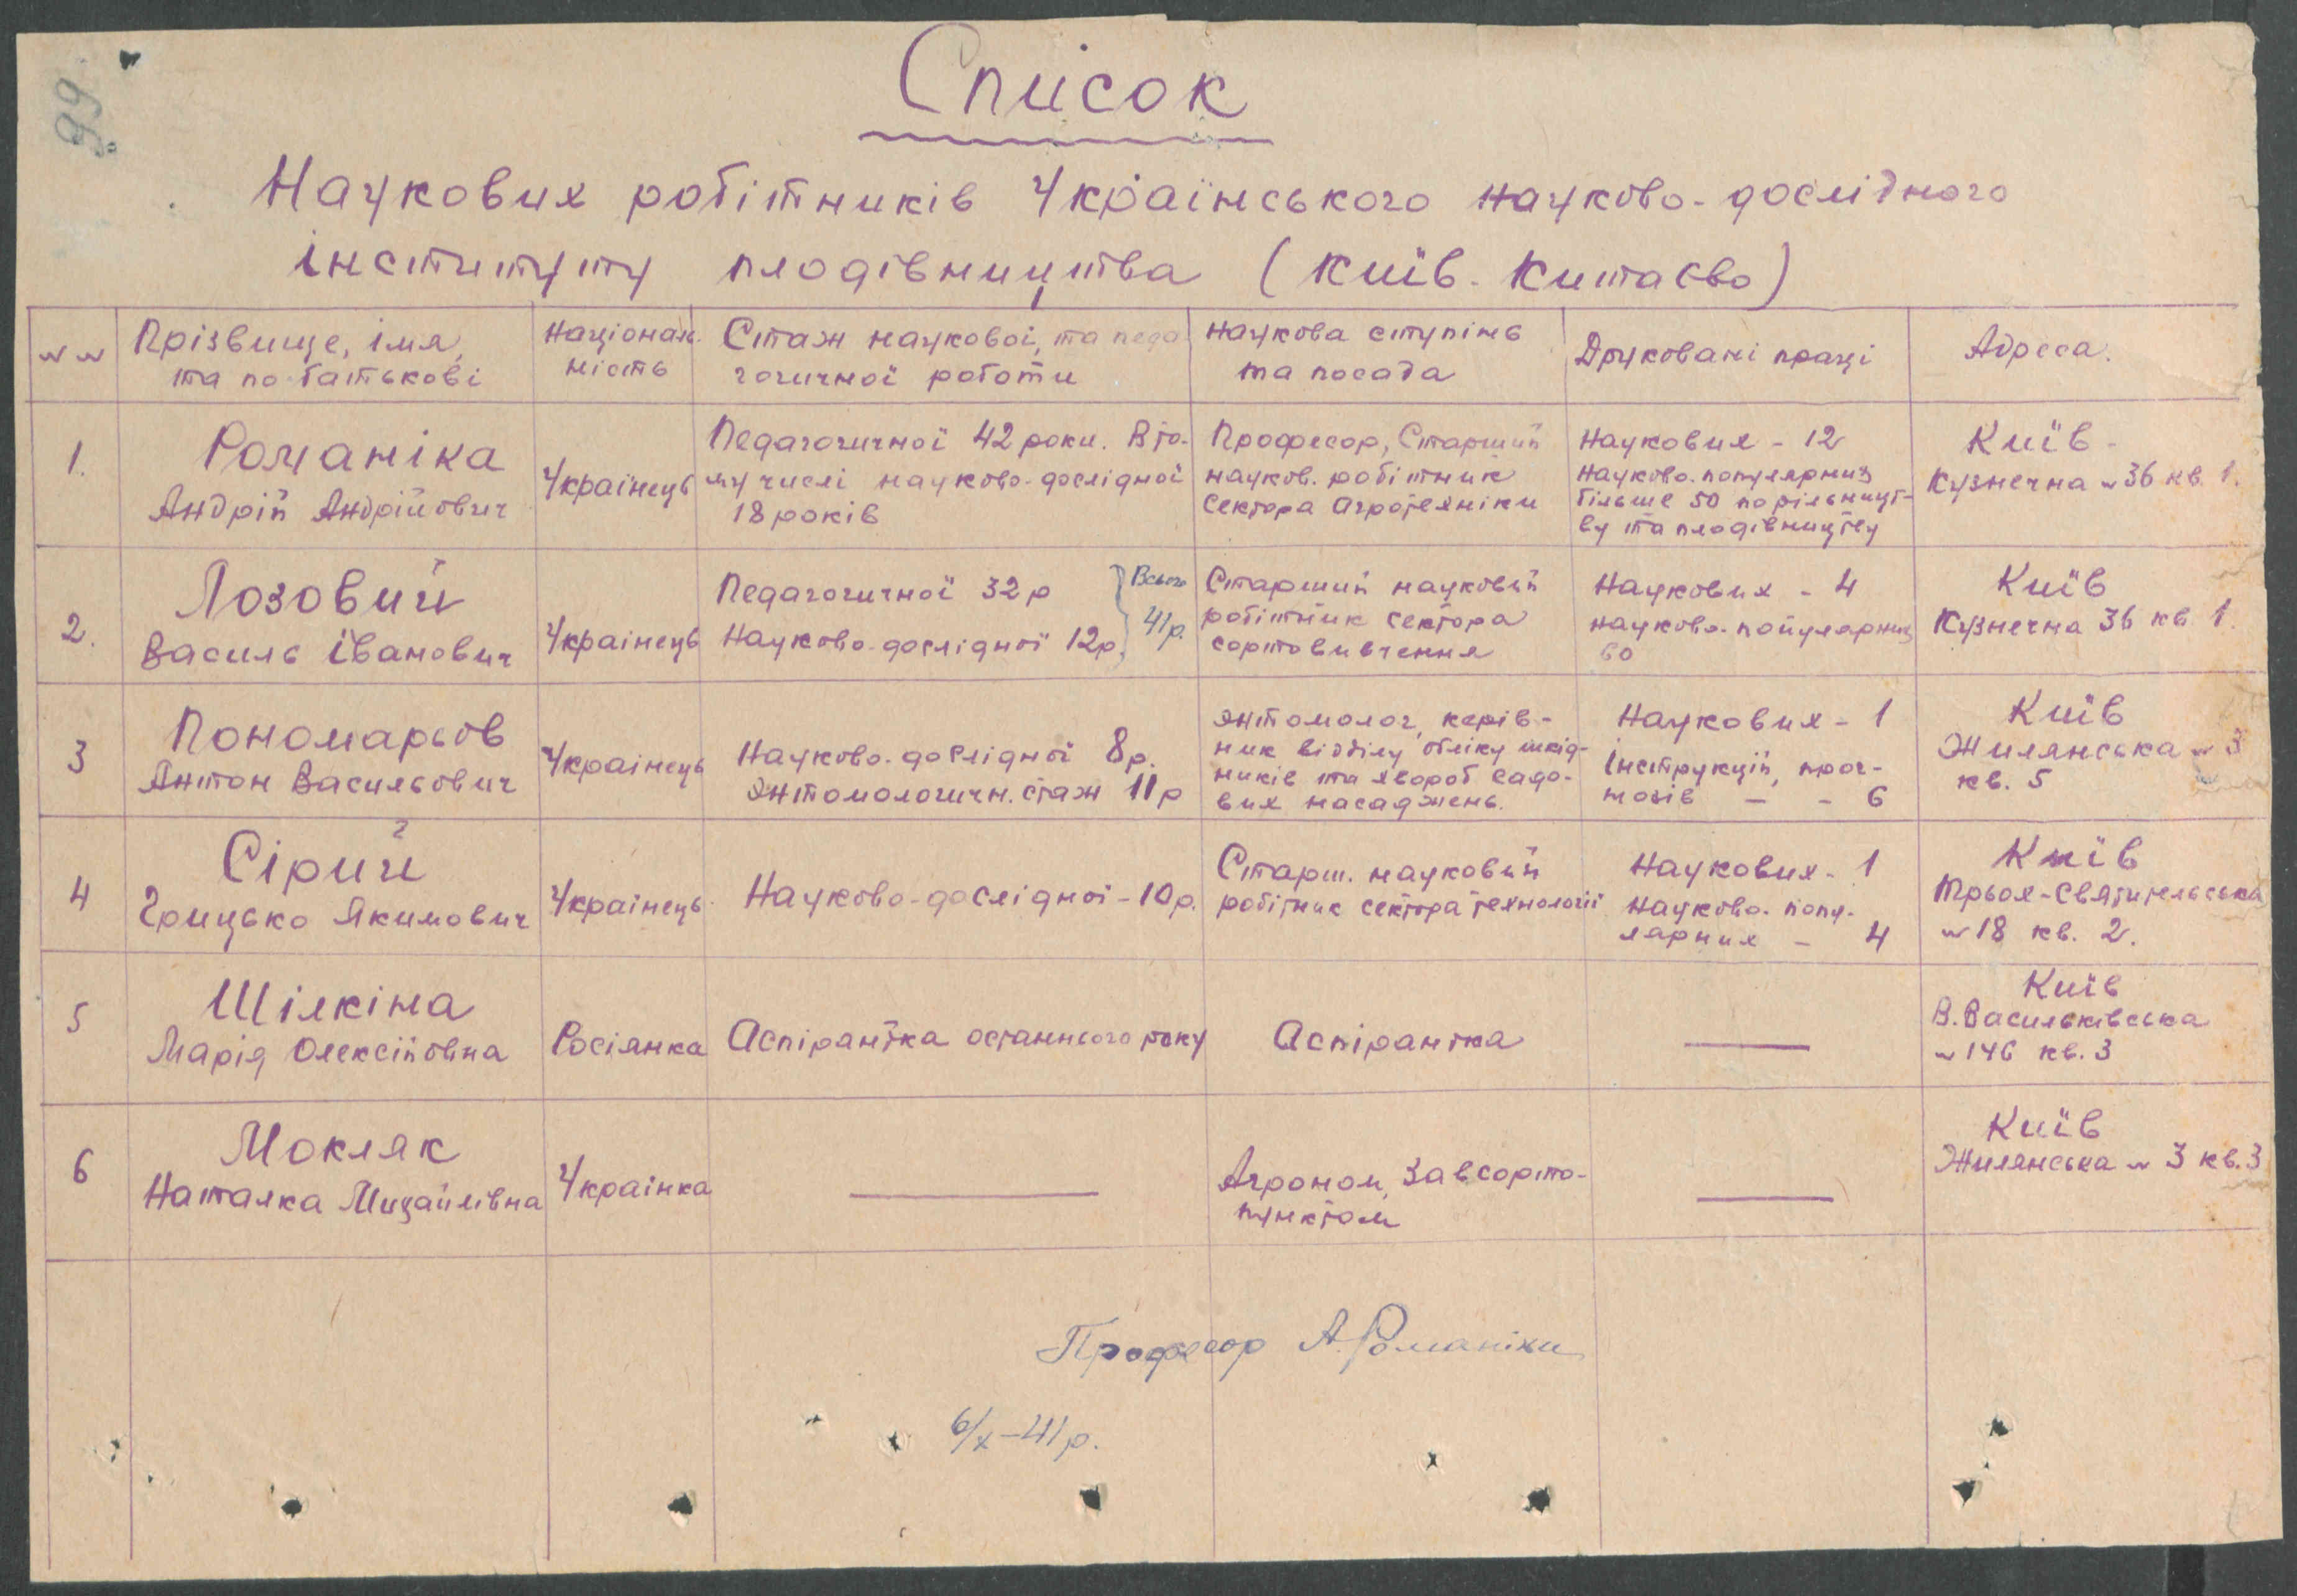 99.
Список
Наукових робітників Українського науково-дослідного
інституту плодівництва (Київ-Китаєво)
№№
Прізвище, імя,
та по батькові
Національ-
ність
Стаж наукової, та педа
гогичної роботи
Наукова ступінь
та посада
Друковані праці
Адреса.
1.
Романіка
Андрій Андрійович
Українець
Педагогичної 42 роки. В то-
му числі науково-дослідної
18 років
Професор, Старший
науков. робітник
сектора агротехніки
Наукових - 12
Науково-популярних
більше 50 по рільницт-
ву та плодівництву
Київ -
Кузнечна № 36 кв. 1.
2.
Лозовий
Василь Іванович
Українець
Педагогичної 32 р
Науково-дослідної 12р.
Всього
41р.
Старший науковий
робітник сектора
сортовивчення
Наукових - 4
Науково-популярних
60
Київ
Кузнечна 36 кв 1.
3
Пономарьов
Антон Васильович
Українець
Науково-дослідної 8р.
Энтомологичн. стаж 11р
Энтомолог, керів-
ник відділу обліку шкід-
ників та хвороб садо-
вих насаджень.
Наукових - 1
Інструкцій, прог-
нозів — - 6
Київ
Жилянська № 3
кв. 5
4
Сірий
Грицько Якимович
Українець
Науково-дослідної - 10 р.
Старш. науковий
робітник сектора технології
Наукових - 1
Науково-попу-
лярних - 4
Київ
Трьох-Святительська
№ 18 кв. 2.
5
Шілкіна
Марія Олексіївна
Росіянка
Аспірантка останнього року
Аспірантка
———
Київ
В. Васильківська
№ 146 кв. 3
6
Мокляк
Наталка Михайлівна
Українка
———
Агроном, Завсорто-
пунктом
———
Київ
Жилянська № 3 кв. 3
Професор А. Романіка
6/X-41р.